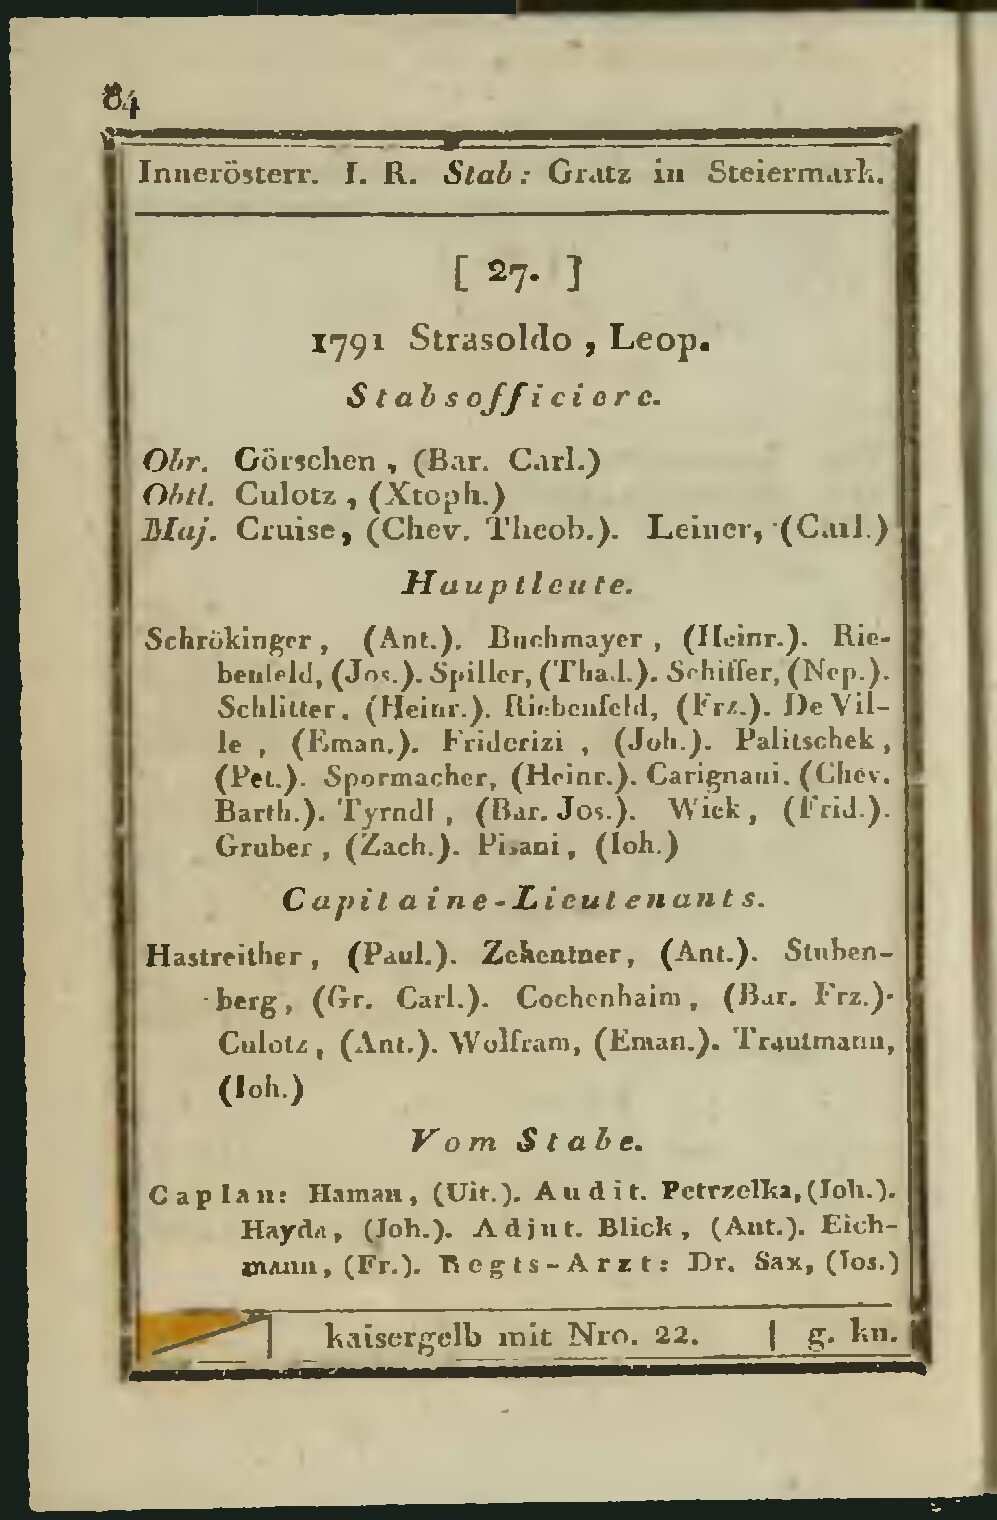 84
Innerösterr. I. R. Stab: Gratz in Steiermark.
[ 27. ]
1791 Strasoldo, Leop.
Stabsofficiere.
Obr. Görschen, (Bar. Carl.)
Obtl. Culotz, (Xtoph.)
Maj. Cruise, (Chev. Theob.). Leiner, (Carl.)
Hauptleute.
Schrökinger, (Ant.). Buchmayer, (Heinr.). Rie-
benfeld, (Jos.). Spiller, (Thad.). Schiffer, (Nep.).
Schlitter. (Heinr.). Riebenfeld, (Frz.). De Vil-
le, (Eman.). Friderizi, (Joh.). Palitschek,
(Pet.). Spormacher, (Heinr.). Carignani. (Chev.
Barth.). Tyrndl, (Bar. Jos.). Wick, (Frid.).
Gruber, (Zach.). Pisani, (Ioh.)
Capitaine-Lieutenants.
Hastreither, (Paul.). Zehentner, (Ant.). Stuben-
berg, (Gr. Carl.). Cochenhaim, (Bar. Frz.).
Culotz, (Ant.). Wolfram, (Eman.). Trautmann,
(Ioh.)
Vom Stabe.
Caplan: Haman, (Uit.). Audit. Petrzelka, (Ioh.).
Hayda, (Joh.). Adjut. Blick, (Ant.). Eich-
mann, (Fr.). Regts-Arzt: Dr. Sax, (Ios.)
kaisergelb mit Nro. 22. | g. kn.